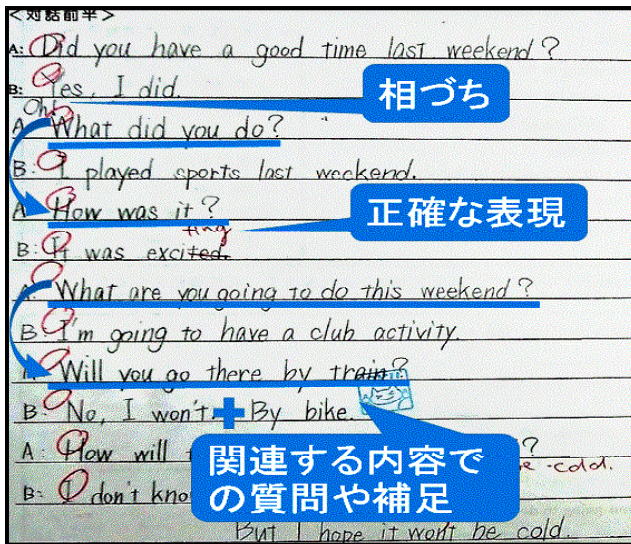 <対話前半>
A: Did you have a good time last weekend?
B: Yes, I did.
相づち
Oh!
A: What did you do?
B: I played sports last weekend.
A: How was it?
正確な表現
ting
B: It was excited.
A: What are you going to do this weekend?
B: I'm going to have a club activity.
A: Will you go there by train?
B: No, I won't. + By bike.
A: How will ?
関連する内容で
の質問や補足
cold.
B: I don't kno
But I hope it won't be cold.